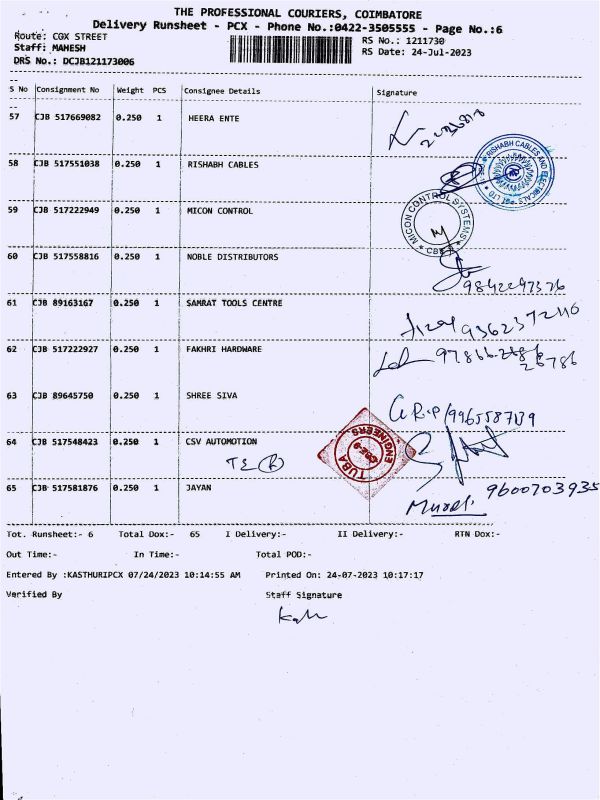 THE PROFESSIONAL COURIERS, COIMBATORE
Delivery Runsheet - PCX - Phone No.:0422-3505555 - Page No.:6
Route: CGX STREET
Staff: MAHESH
DRS No.: DCJB121173006
RS No.: 1211730
RS Date: 24-Jul-2023
S No Consignment No Weight PCS Consignee Details Signature
57 CJB 517669082 0.250 1 HEERA ENTE
58 CJB 517551038 0.250 1 RISHABH CABLES
RISHABH CABLES AND ELECTRICALS
59 CJB 517222949 0.250 1 MICON CONTROL
MICON CONTROL SYSTEMS
60 CJB 517558816 0.250 1 NOBLE DISTRIBUTORS
61 CJB 89163167 0.250 1 SAMRAT TOOLS CENTRE
62 CJB 517222927 0.250 1 FAKHRI HARDWARE
63 CJB 89645750 0.250 1 SHREE SIVA
64 CJB 517548423 0.250 1 CSV AUTOMOTION
TUBA ENGINEERS
65 CJB 517581876 0.250 1 JAYAN
9600703935
Tot. Runsheet:- 6 Total Dox:- 65 I Delivery:- II Delivery:- RTN Dox:-
Out Time:- In Time:- Total POD:-
Entered By :KASTHURIPCX 07/24/2023 10:14:55 AM Printed On: 24-07-2023 10:17:17
Verified By Staff Signature